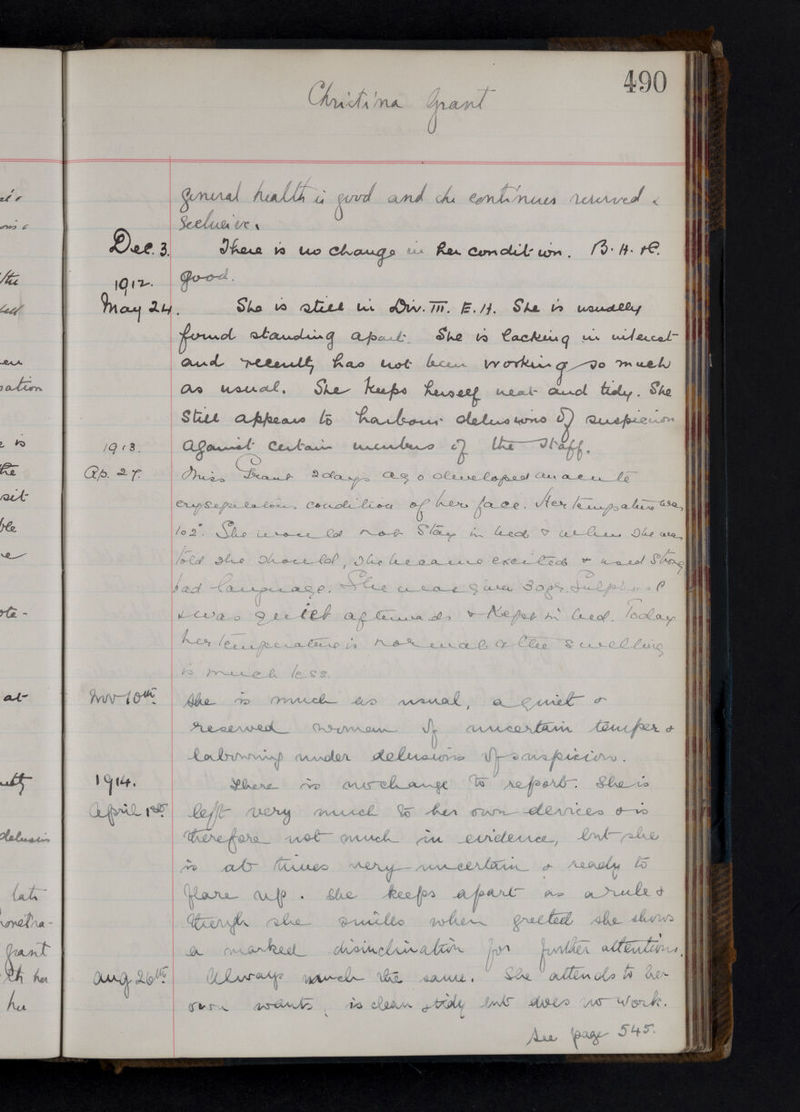 490
Christina Grant
general health is good and she continues reserved &
seclusive.
Dec. 3. There is no change in her condition. B. H. &c.
good.
1912.
May 24. She is still in Div. III. E. H. She is usually
found standing apart. She is lacking in interest
and recently has not been working so much
as usual. She keeps herself neat and tidy. She
still appears to harbour delusions of suspicion
against certain members of the staff.
1913.
Ap. 27. Miss Grant 2 days ago developed an acute
condition of her face. Her temperature was
102°. She would not stay in bed & when she was
told she should, she became excited & used strong
bad language. She was given 30 grs. Sulphonal
& was quiet afterwards & kept in bed. Today
her temperature is normal & the swelling
is much less.
Nov 10th. She is much as usual, a quiet &
reserved woman of uncertain temper &
labouring under delusions of suspicion.
1914.
April 1st. There is no change to report. She is
left very much to her own devices & is
therefore not much in evidence, but she
is at times very uncertain & ready to
flare up. She keeps apart as a rule &
though she smiles when greeted she shows
a marked disinclination for further attentions.
Aug 26th. Always much the same. She attends to her
own wants, is clean & tidy but does no work.
See page 545.